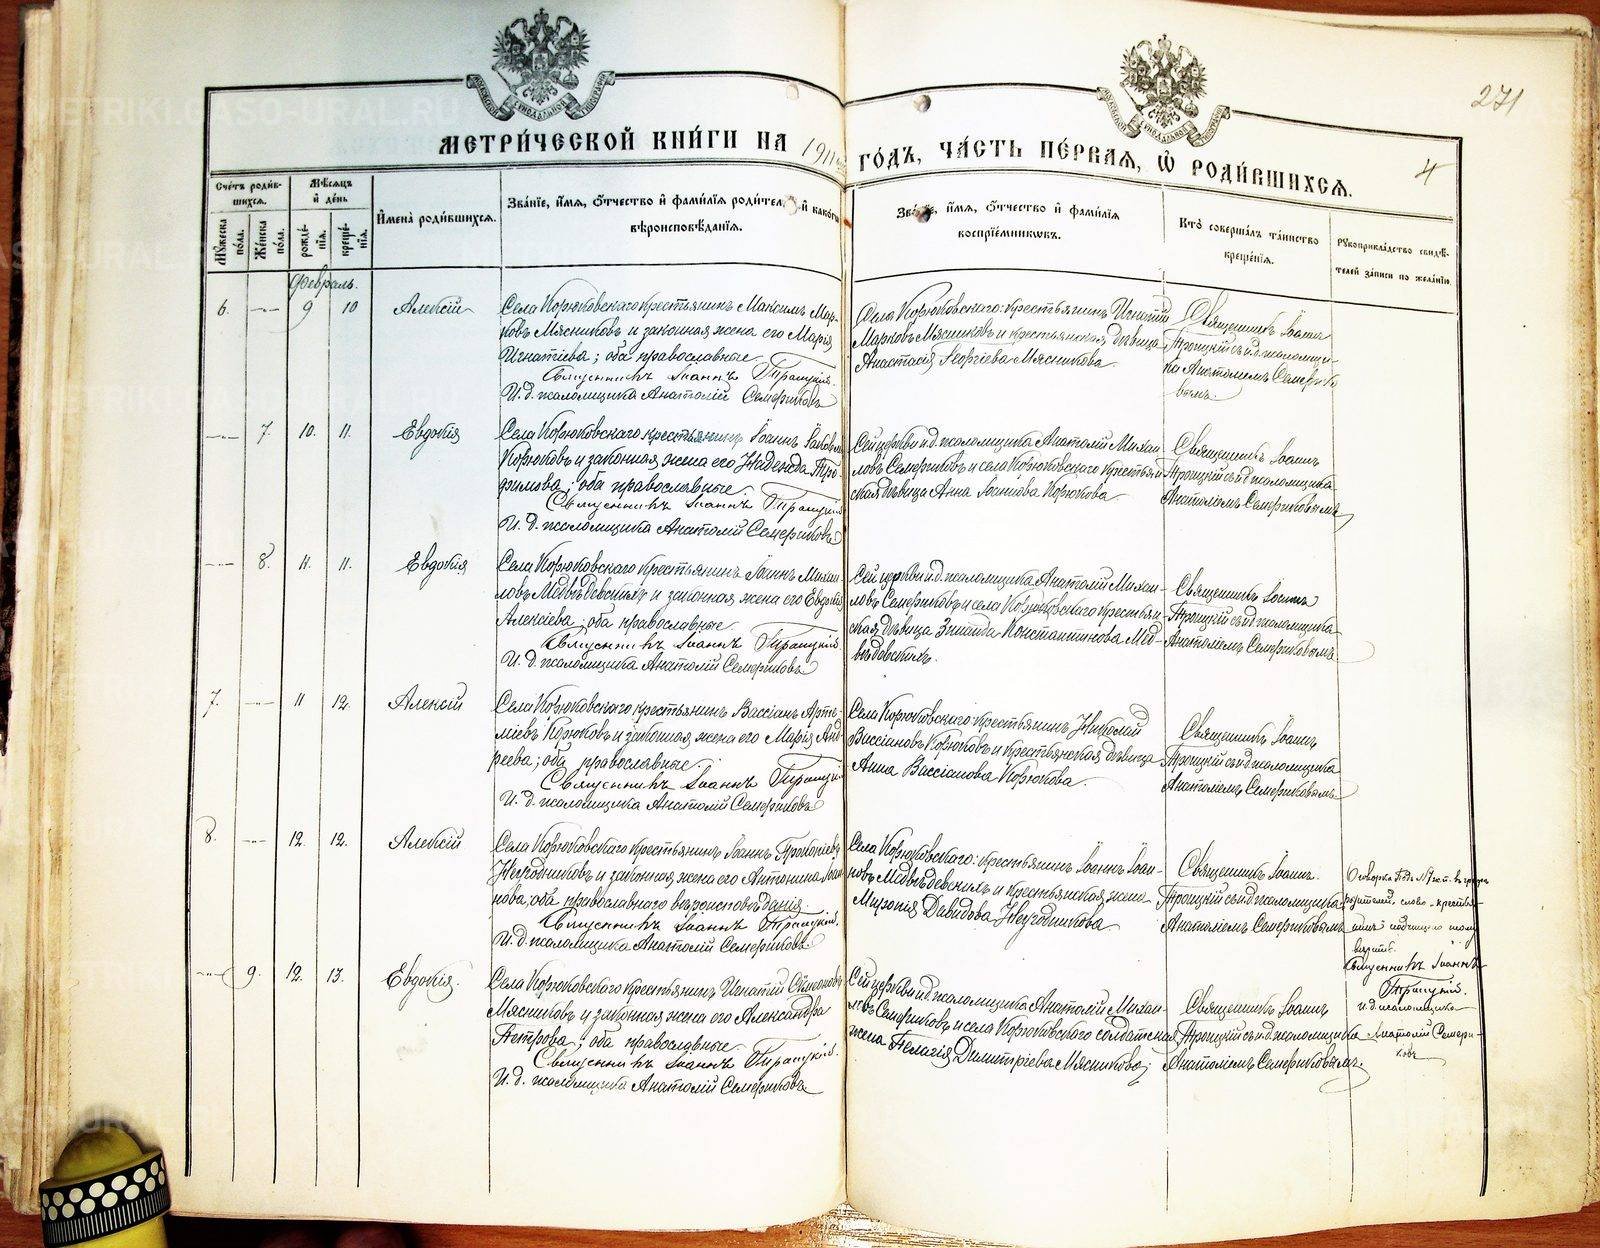 271
4
МОСКОВСКОЙ СѴНОДАЛЬНОЙ ТИПОГРАФІИ
МОСКОВСКОЙ СѴНОДАЛЬНОЙ ТИПОГРАФІИ
МЕТРИ́ЧЕСКОЙ КНИ́ГИ НА 1911 ГО́ДЪ, ЧА́СТЬ ПЕ́РВАЯ, Ѡ҆ РОДИ́ВШИХСЯ.
Сче́тъ роди́в-
шихся.
Мꙋ́жеска по́ла.
Же́нска по́ла.
Мѣ́сяцъ
и҆ де́нь
рожде́-
нїя.
креще́-
нїя.
И҆мена̀ роди́вшихся.
Зва́нїе, и҆́мя, ѻ҆́тчество и҆ фами́лїя роди́тел
и҆ како́гѡ
вѣроисповѣ́данїя.
Зва́нїе, и҆́мя, ѻ҆́тчество и҆ фами́лїя
воспрїе́мникѡвъ.
Кто̀ соверша́лъ та́инство
креще́нїя.
Рꙋкоприкла́дство свидѣ́-
телей за́писи по жела́нїю.
Февраль.
6. 9 10 Алексій
Села Корюковскаго крестьянинъ Максимъ Мар-
ковъ Мясниковъ и законная жена его Марія
Игнатіева; оба православные
Священникъ Іоаннъ Троицкій.
И. д. псаломщика Анатолій Семериковъ
Села Корюковскаго: крестьянинъ Игнатій
Марковъ Мясниковъ и крестьянская дѣвица
Анастасія Георгіева Мясникова
Священникъ Іоаннъ
Троицкій съ и.д. псаломщи-
ка Анатоліемъ Семерико
вымъ.
7. 10. 11. Евдокія
Села Корюковскаго крестьянинъ Іоаннъ Іаковлевъ
Корюковъ и законная жена его Надежда Тро-
фимова; оба православные
Священникъ Іоаннъ Троицкій
И. д. псаломщика Анатолій Семериковъ
Сей церкви и.д. псаломщика Анатолій Михаи-
ловъ Семериковъ и села Корюковскаго крестьян
ская дѣвица Анна Іоаннова Корюкова
Священникъ Іоаннъ
Троицкій съ и.д. псаломщика
Анатоліемъ Семериковымъ
8. 11. 11. Евдокія
Села Корюковскаго крестьянинъ Іоаннъ Михаи-
ловъ Медвѣдевскихъ и законная жена его Евдокія
Алексіева; оба православные
Священникъ Іоаннъ Троицкій
И. д. псаломщика Анатолій Семериковъ
Сей церкви и.д. псаломщика Анатолій Михаи-
ловъ Семериковъ и села Корюковскаго крестьян-
ская дѣвица Зинаида Константинова Мед-
вѣдевскихъ.
Священникъ Іоаннъ
Троицкій съ и.д. псаломщика
Анатоліемъ Семериковымъ
7. 11 12. Алексій
Села Корюковскаго крестьянинъ Вассіанъ Арте-
міевъ Корюковъ и законная жена его Марія Анд-
реева; оба православные.
Священникъ Іоаннъ Троицкій
И. д. псаломщика Анатолій Семериковъ
Села Корюковскаго крестьянинъ Николай
Вассіановъ Корюковъ и крестьянская дѣвица
Анна Вассіанова Корюкова.
Священникъ Іоаннъ
Троицкій съ и.д. псаломщика
Анатоліемъ Семериковымъ
8. 12. 12. Алексій
Села Корюковскаго крестьянинъ Іоаннъ Прокопіевъ
Негодниковъ и законная жена его Антонина Іоан
нова, оба православнаго вѣроисповѣданія.
Священникъ Іоаннъ Троицкій.
И. д. псаломщика Анатолій Семериковъ.
Села Корюковскаго: крестьянинъ Іоаннъ Іоан-
новъ Медвѣдевскихъ и крестьянская жена
Миропія Давидова Негодникова
Священникъ Іоаннъ.
Троицкій съ и.д. псаломщика
Анатоліемъ Семериковымъ
Оговорка подъ № 7 въ графѣ
родителей, слово - крестья-
нинъ
вѣрить.
Священникъ Іоаннъ
Троицкій.
и.д. псаломщика
Анатолій Семери-
ковъ
9. 12. 13. Евдокія.
Села Корюковскаго крестьянинъ Игнатій Симеоновъ
Мясниковъ и законная жена его Александра
Петрова; оба православные
Священникъ Іоаннъ Троицкій.
И. д. псаломщика Анатолій Семериковъ
Сей церкви и.д. псаломщика Анатолій Михаи-
ловъ Семериковъ и села Корюковскаго солдатская
жена Пелагія Димитріева Мясникова;
Священникъ Іоаннъ
Троицкій съ и.д. псаломщика
Анатоліемъ Семериковымъ.
METRIKI.GASO-URAL.RU